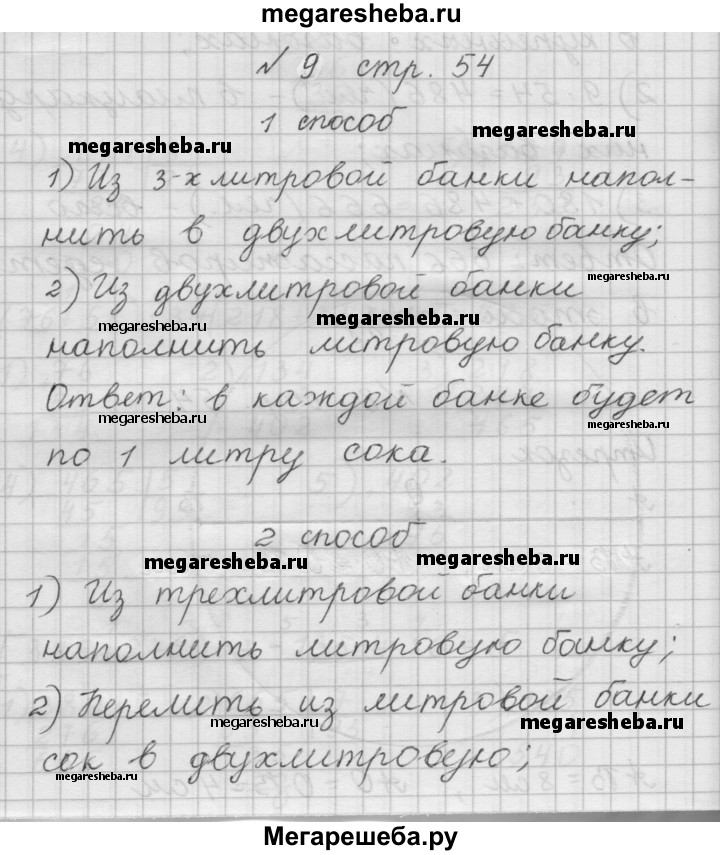 megaresheba.ru
№ 9 стр. 54
1 способ
megaresheba.ru
megaresheba.ru
1) Из 3-х литровой банки напол-
нить в двухлитровую банку;
2) Из двухлитровой банки
megaresheba.ru
megaresheba.ru
megaresheba.ru
наполнить литровую банку.
Ответ: в каждой банке будет
megaresheba.ru
megaresheba.ru
по 1 литру сока.
2 способ
megaresheba.ru
megaresheba.ru
1) Из трехлитровой банки
наполнить литровую банку;
2) Перелить из литровой банки
megaresheba.ru
megaresheba.ru
сок в двухлитровую;
megaresheba.ru
Мегарешеба.ру